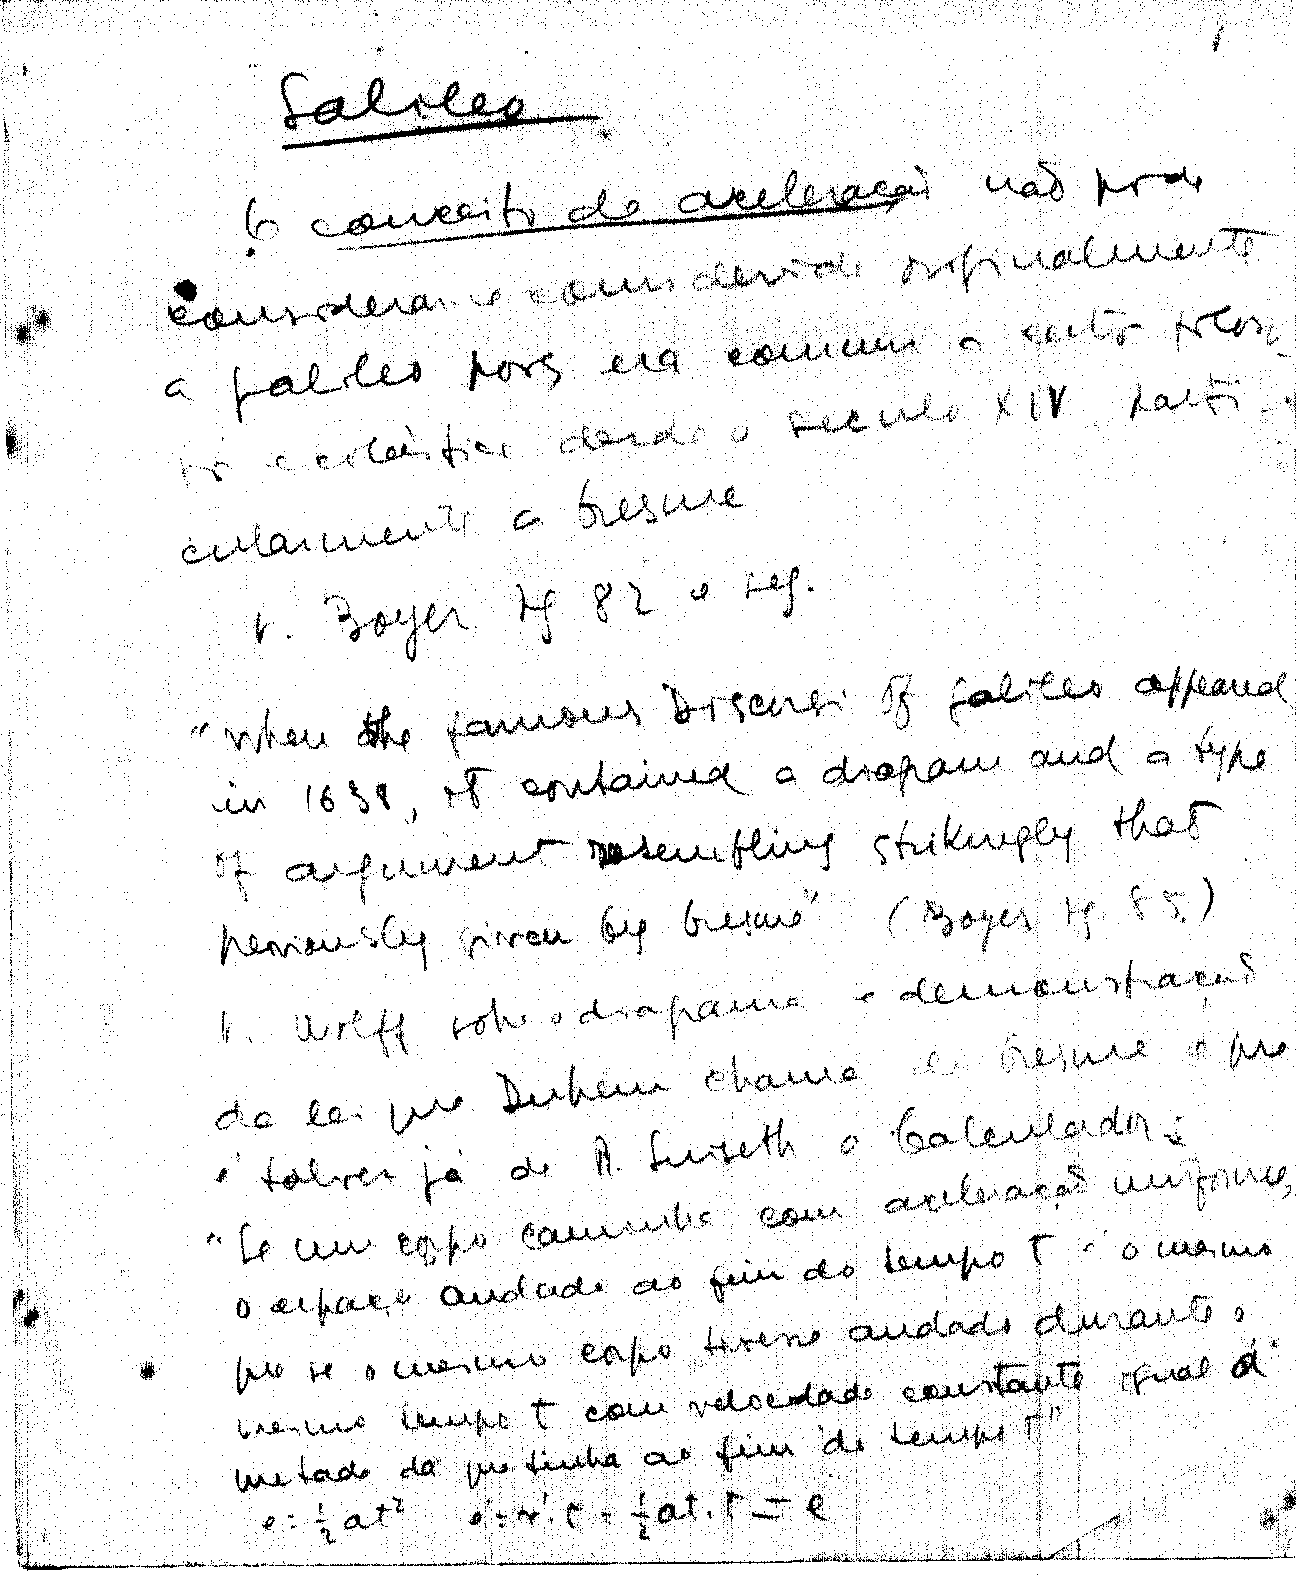 Galileo
O conceito de aceleração não pode
considerar-se considerado originalmente
a galileo pois era comum a certos filóso-
fos escolásticos desde o século XIV parti-
cularmente a Oresme
v. Boyer pg 82 e seg.
"When the famous Discorsi of galileo appeared
in 1638, it contained a diagram and a type
of argument resembling strikingly that
previously given by Oresme" (Boyer pg. 85)
v. Wolff sobre o diagrama e demonstração
da lei que Duhem chama de Oresme e que
é talvez já de A. Suiseth o Calculador:
"Se um corpo caminha com aceleração uniforme,
o espaço andado ao fim do tempo t é o mesmo
que se o mesmo corpo tivesse andado durante o
mesmo tempo t com velocidade constante igual à
metade da que tinha ao fim do tempo t"
e = ½at² e' = v'.t = ½at.t = e